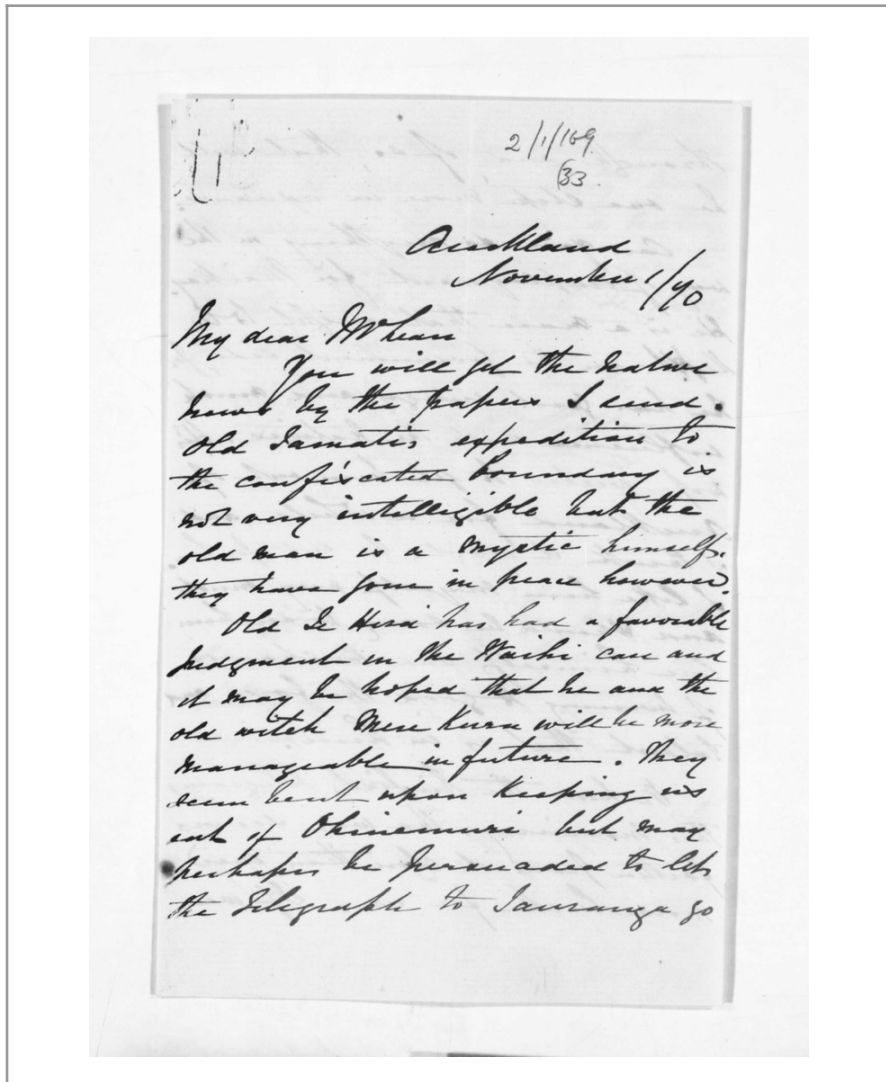 2/1/169
33.
Auckland
November 1/70
My dear McLean
You will get the native
news by the papers I send.
Old Tamati's expedition to
the confiscated boundary is
not very intelligible but the
old man is a mystic himself.
they have gone in peace however.
Old Te Hira has had a favorable
Judgment in the Waihi case and
it may be hoped that he and the
old witch Mere Kuru will be more
manageable in future. They
seem bent upon keeping us
out of Ohinemuri but may
perhaps be persuaded to let
the Telegraph to Tauranga go